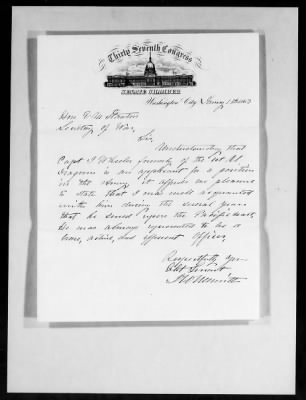 Thirty Seventh Congress
SENATE CHAMBER
Washington City
Hon E M Stanton
Secretary of War,
Sir,
Understanding that
Capt. T Wheeler formerly of the 1st US
Dragoons is an applicant for a position
in the Army it affords me pleasure
to state that I was well acquainted
with him during the several years
that he served upon the Pacific coast,
He was always represented to be a
brave, active, and efficient Officer,
Respectfully Yours